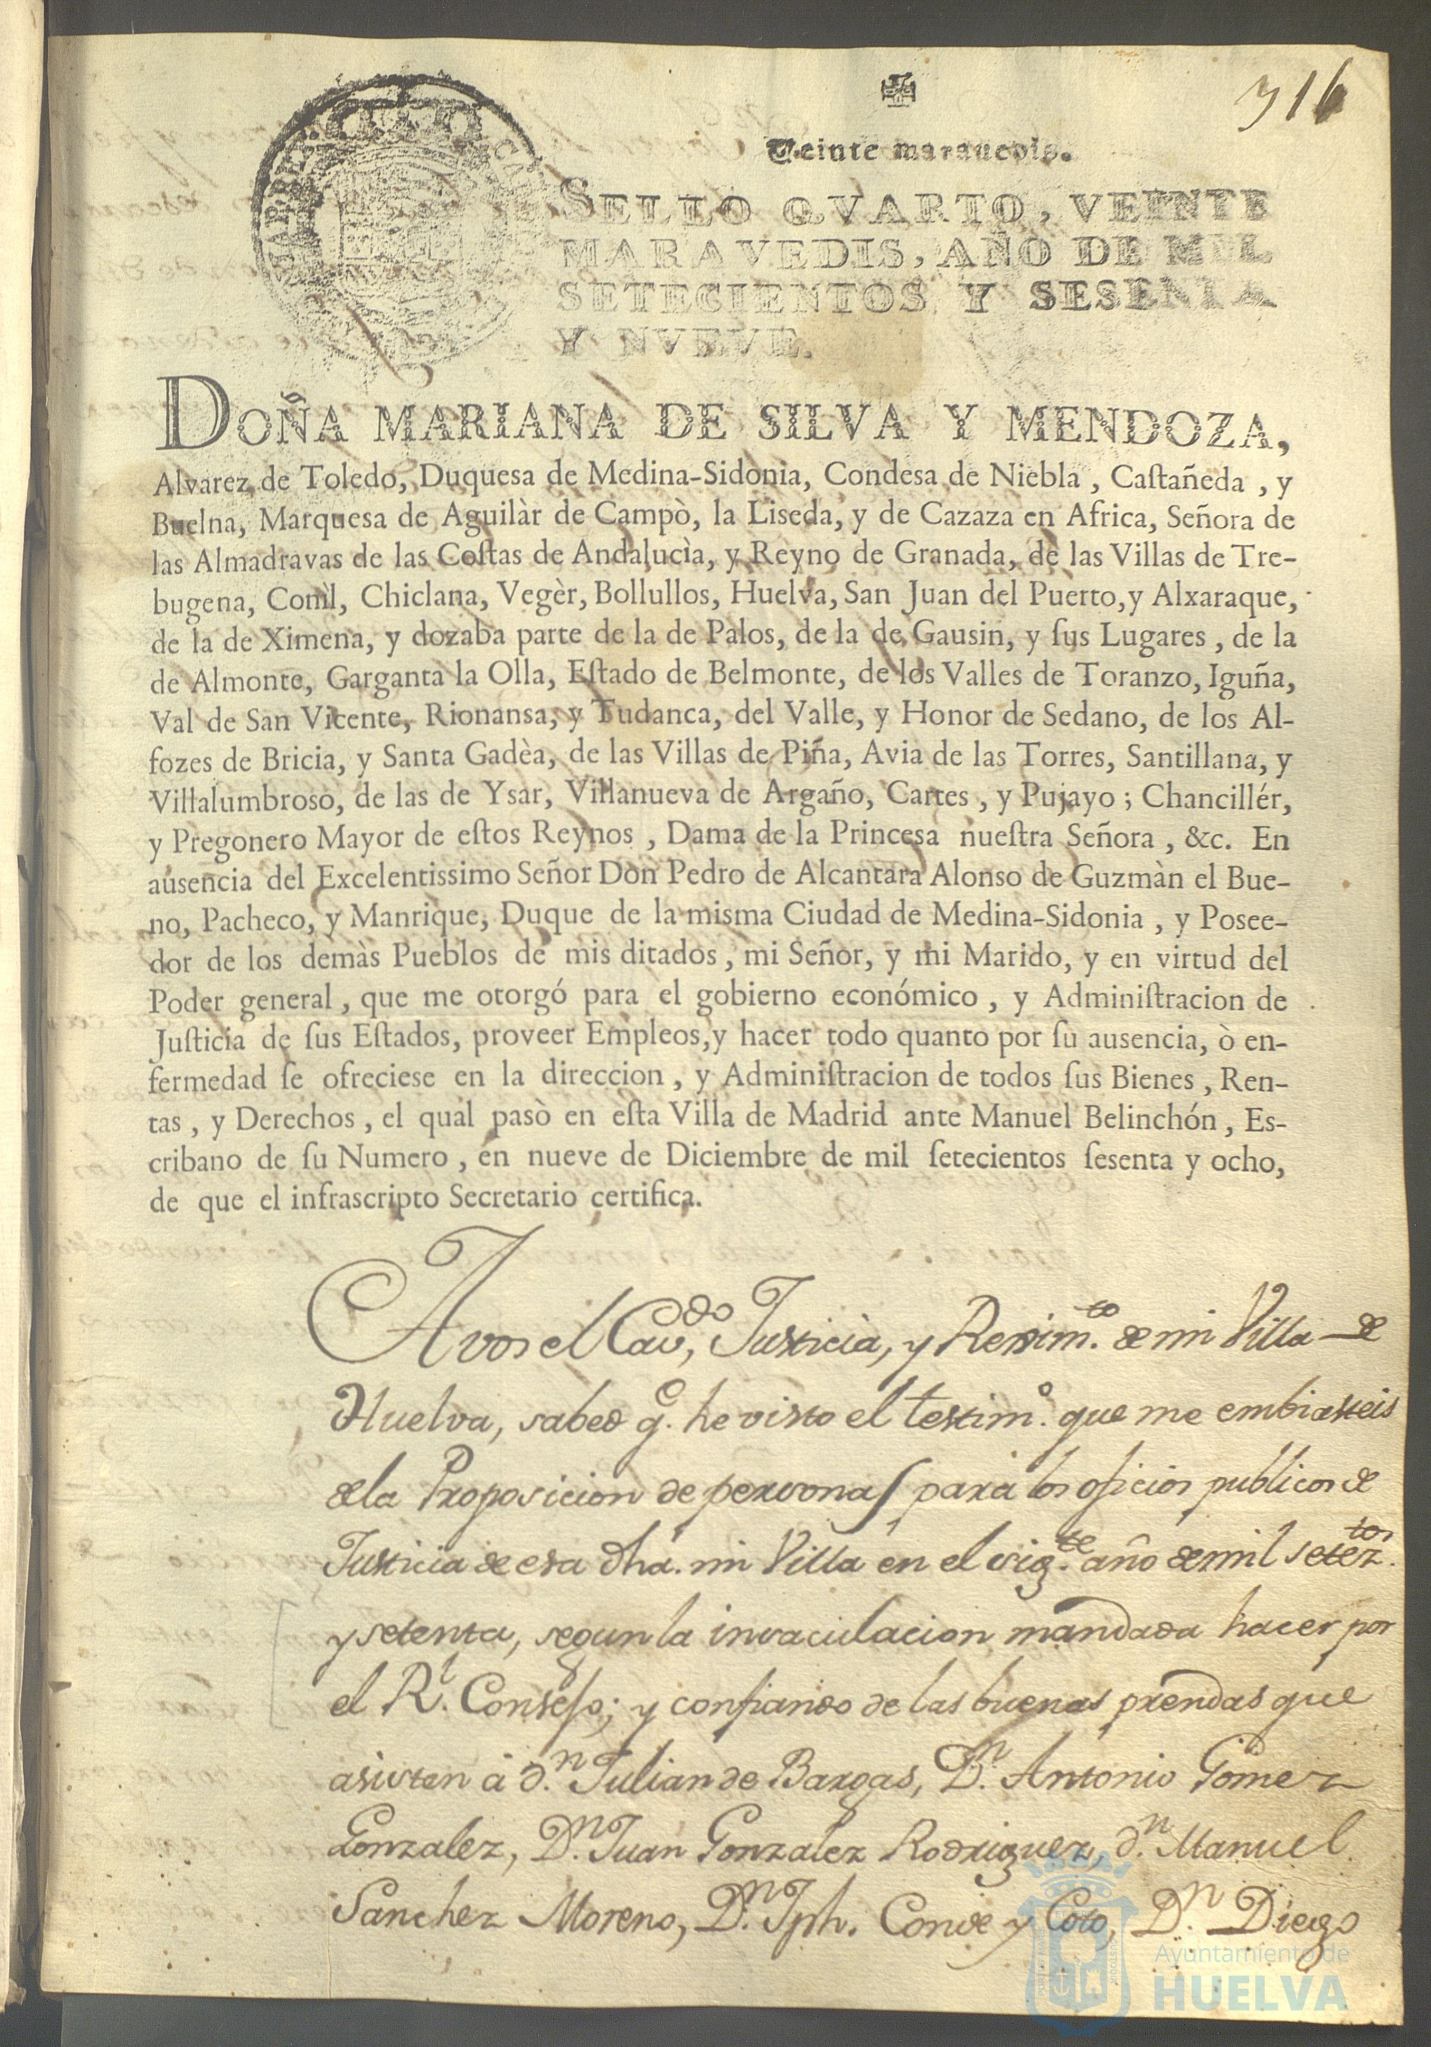 316
Veinte maravedis.
SELLO QVARTO, VEINTE
MARAVEDIS, AÑO DE MIL
SETECIENTOS Y SESENTA
Y NVEVE.
DOÑA MARIANA DE SILVA Y MENDOZA,
Alvarez de Toledo, Duquesa de Medina-Sidonia, Condesa de Niebla, Caſtañeda, y
Buelna, Marquesa de Aguilàr de Campò, la Liseda, y de Cazaza en Africa, Señora de
las Almadravas de las Coſtas de Andalucìa, y Reyno de Granada, de las Villas de Tre-
bugena, Conìl, Chiclana, Vegèr, Bollullos, Huelva, San Juan del Puerto, y Alxaraque,
de la de Ximena, y dozaba parte de la de Palos, de la de Gausin, y ſus Lugares, de la
de Almonte, Garganta la Olla, Eſtado de Belmonte, de los Valles de Toranzo, Iguña,
Val de San Vicente, Rionansa, y Tudanca, del Valle, y Honor de Sedano, de los Al-
fozes de Bricia, y Santa Gadèa, de las Villas de Piña, Avia de las Torres, Santillana, y
Villalumbroso, de las de Ysar, Villanueva de Argaño, Cartes, y Pujayo; Chancillér,
y Pregonero Mayor de eſtos Reynos, Dama de la Princesa nueſtra Señora, &c. En
ausencia del Excelentissimo Señor Don Pedro de Alcantara Alonso de Guzmàn el Bue-
no, Pacheco, y Manrique, Duque de la misma Ciudad de Medina-Sidonia, y Posee-
dor de los demàs Pueblos de mis ditados, mi Señor, y mi Marido, y en virtud del
Poder general, que me otorgó para el gobierno económico, y Adminiſtracion de
Juſticia de ſus Eſtados, proveer Empleos, y hacer todo quanto por ſu ausencia, ò en-
fermedad ſe ofreciese en la direccion, y Adminiſtracion de todos ſus Bienes, Ren-
tas, y Derechos, el qual pasò en eſta Villa de Madrid ante Manuel Belinchón, Es-
cribano de ſu Numero, en nueve de Diciembre de mil ſetecientos ſesenta y ocho,
de que el infrascripto Secretario certifica.
A vos el Cav.do, Justicia, y Reximto. de mi Villa de
Huelva, sabed q.e he visto el testim.o que me embiasteis
de la Proposicion de personas para los oficios publicos de
Justicia de esa dha. mi Villa en el sig.te año de mil setez.tos
y setenta, segun la insaculacion mandada hacer por
el R.l Consejo; y confiando de las buenas prendas que
asisten à d.n Julian de Bargas, D.n Antonio Gomez
Gonzalez, D.n Juan Gonzalez Rodriguez, d.n Manuel
Sanchez Moreno, D.n Jph. Conde y Coto, D.n Diego
Ayuntamiento de
HUELVA